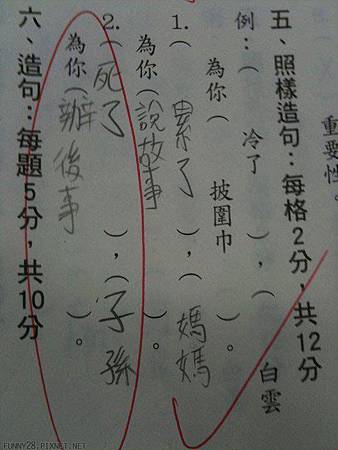 重要性。
五、照樣造句：每格2分，共12分
例：（ 冷了 ），（ 白雲
為你（ 披圍巾 ）。
1.（ 累了 ），（ 媽媽
為你（說故事 ）。
2.（死了 ），（子孫
為你（辦後事 ）。
六、造句：每題5分，共10分
FUNNY28.PIXNET.NET